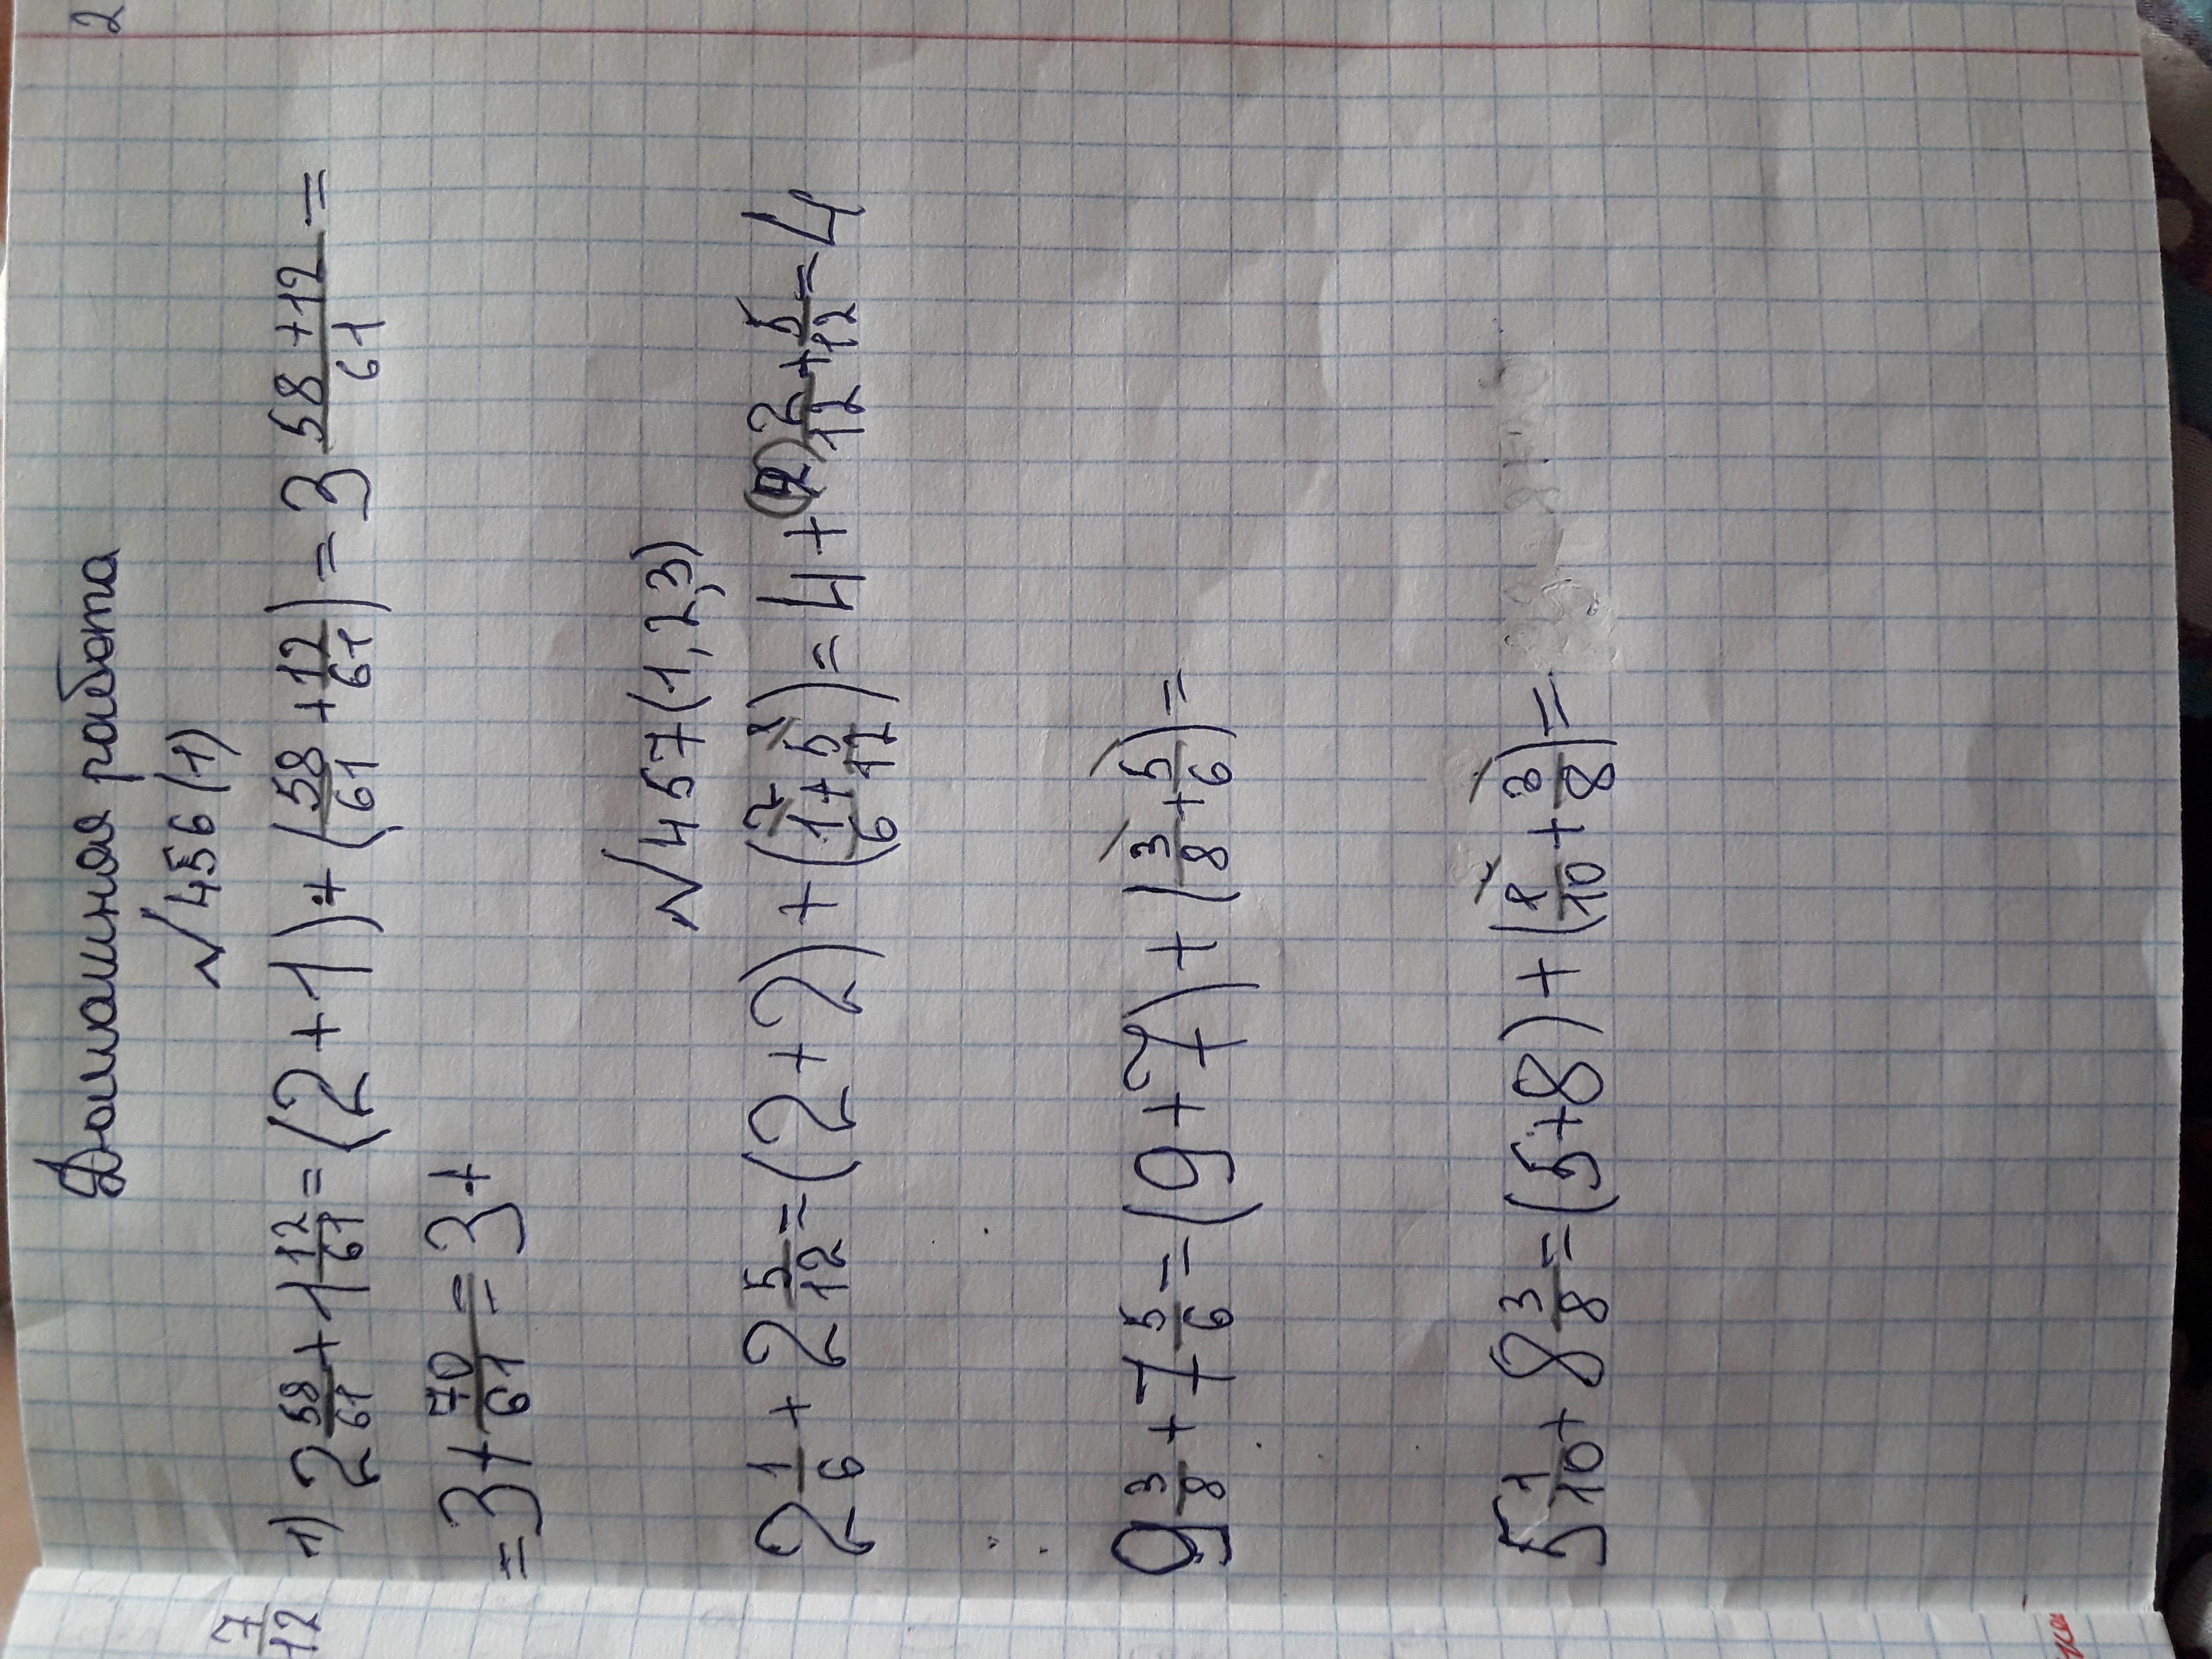 2
Домашняя работа
№456(1)
1) 2 58/61 + 1 12/61 = (2+1) + (58/61 + 12/61) = 3 58+12/61 =
= 3 + 70/61 = 3 +
№457(1,2,3)
2 1/6 + 2 5/12 = (2+2) + (1/6 + 5/12) = 4 + 2/12 + 5/12 = 4
7/12
9 3/8 + 7 5/6 = (9+7) + (3/8 + 5/6) =
5 1/10 + 8 3/8 = (5+8) + (1/10 + 3/8) =